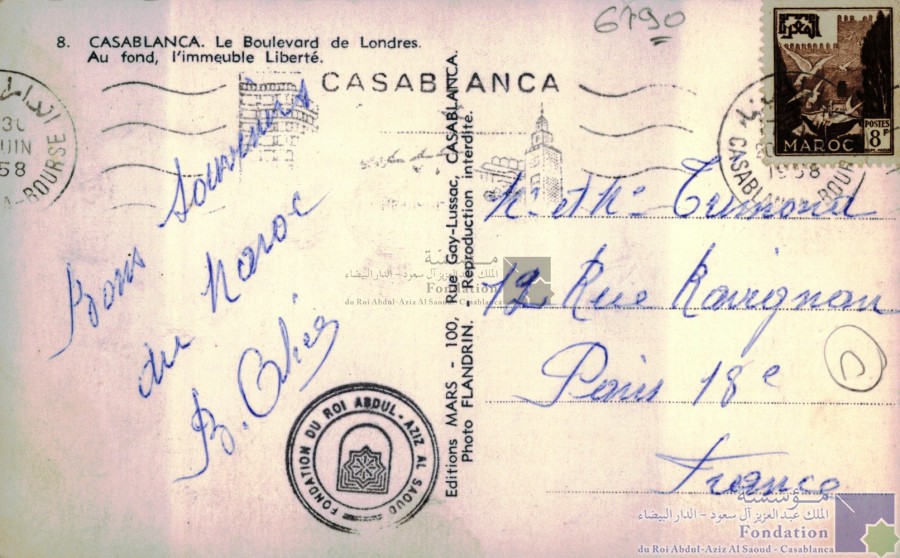 6790
8. CASABLANCA. Le Boulevard de Londres.
Au fond, l'immeuble Liberté.
CASABLANCA
المغرب
POSTES
8F
MAROC
30
JUIN
58
A-BOURSE
1958
CASABLANCA-BOUR
Bons Souvenirs
du Maroc
B.
Editions MARS - 100, Rue Gay-Lussac, CASABLANCA.
Photo FLANDRIN. Reproduction interdite.
M. et Mme
12 Rue Ravignan
Paris 18e
France
C
FONDATION DU ROI ABDUL-AZIZ AL SAOUD
مؤسسة
الملك عبد العزيز آل سعود - الدار البيضاء
Fondation
du Roi Abdul-Aziz Al Saoud - Casablanca
مؤسسة
الملك عبد العزيز آل سعود - الدار البيضاء
Fondation
du Roi Abdul-Aziz Al Saoud - Casablanca